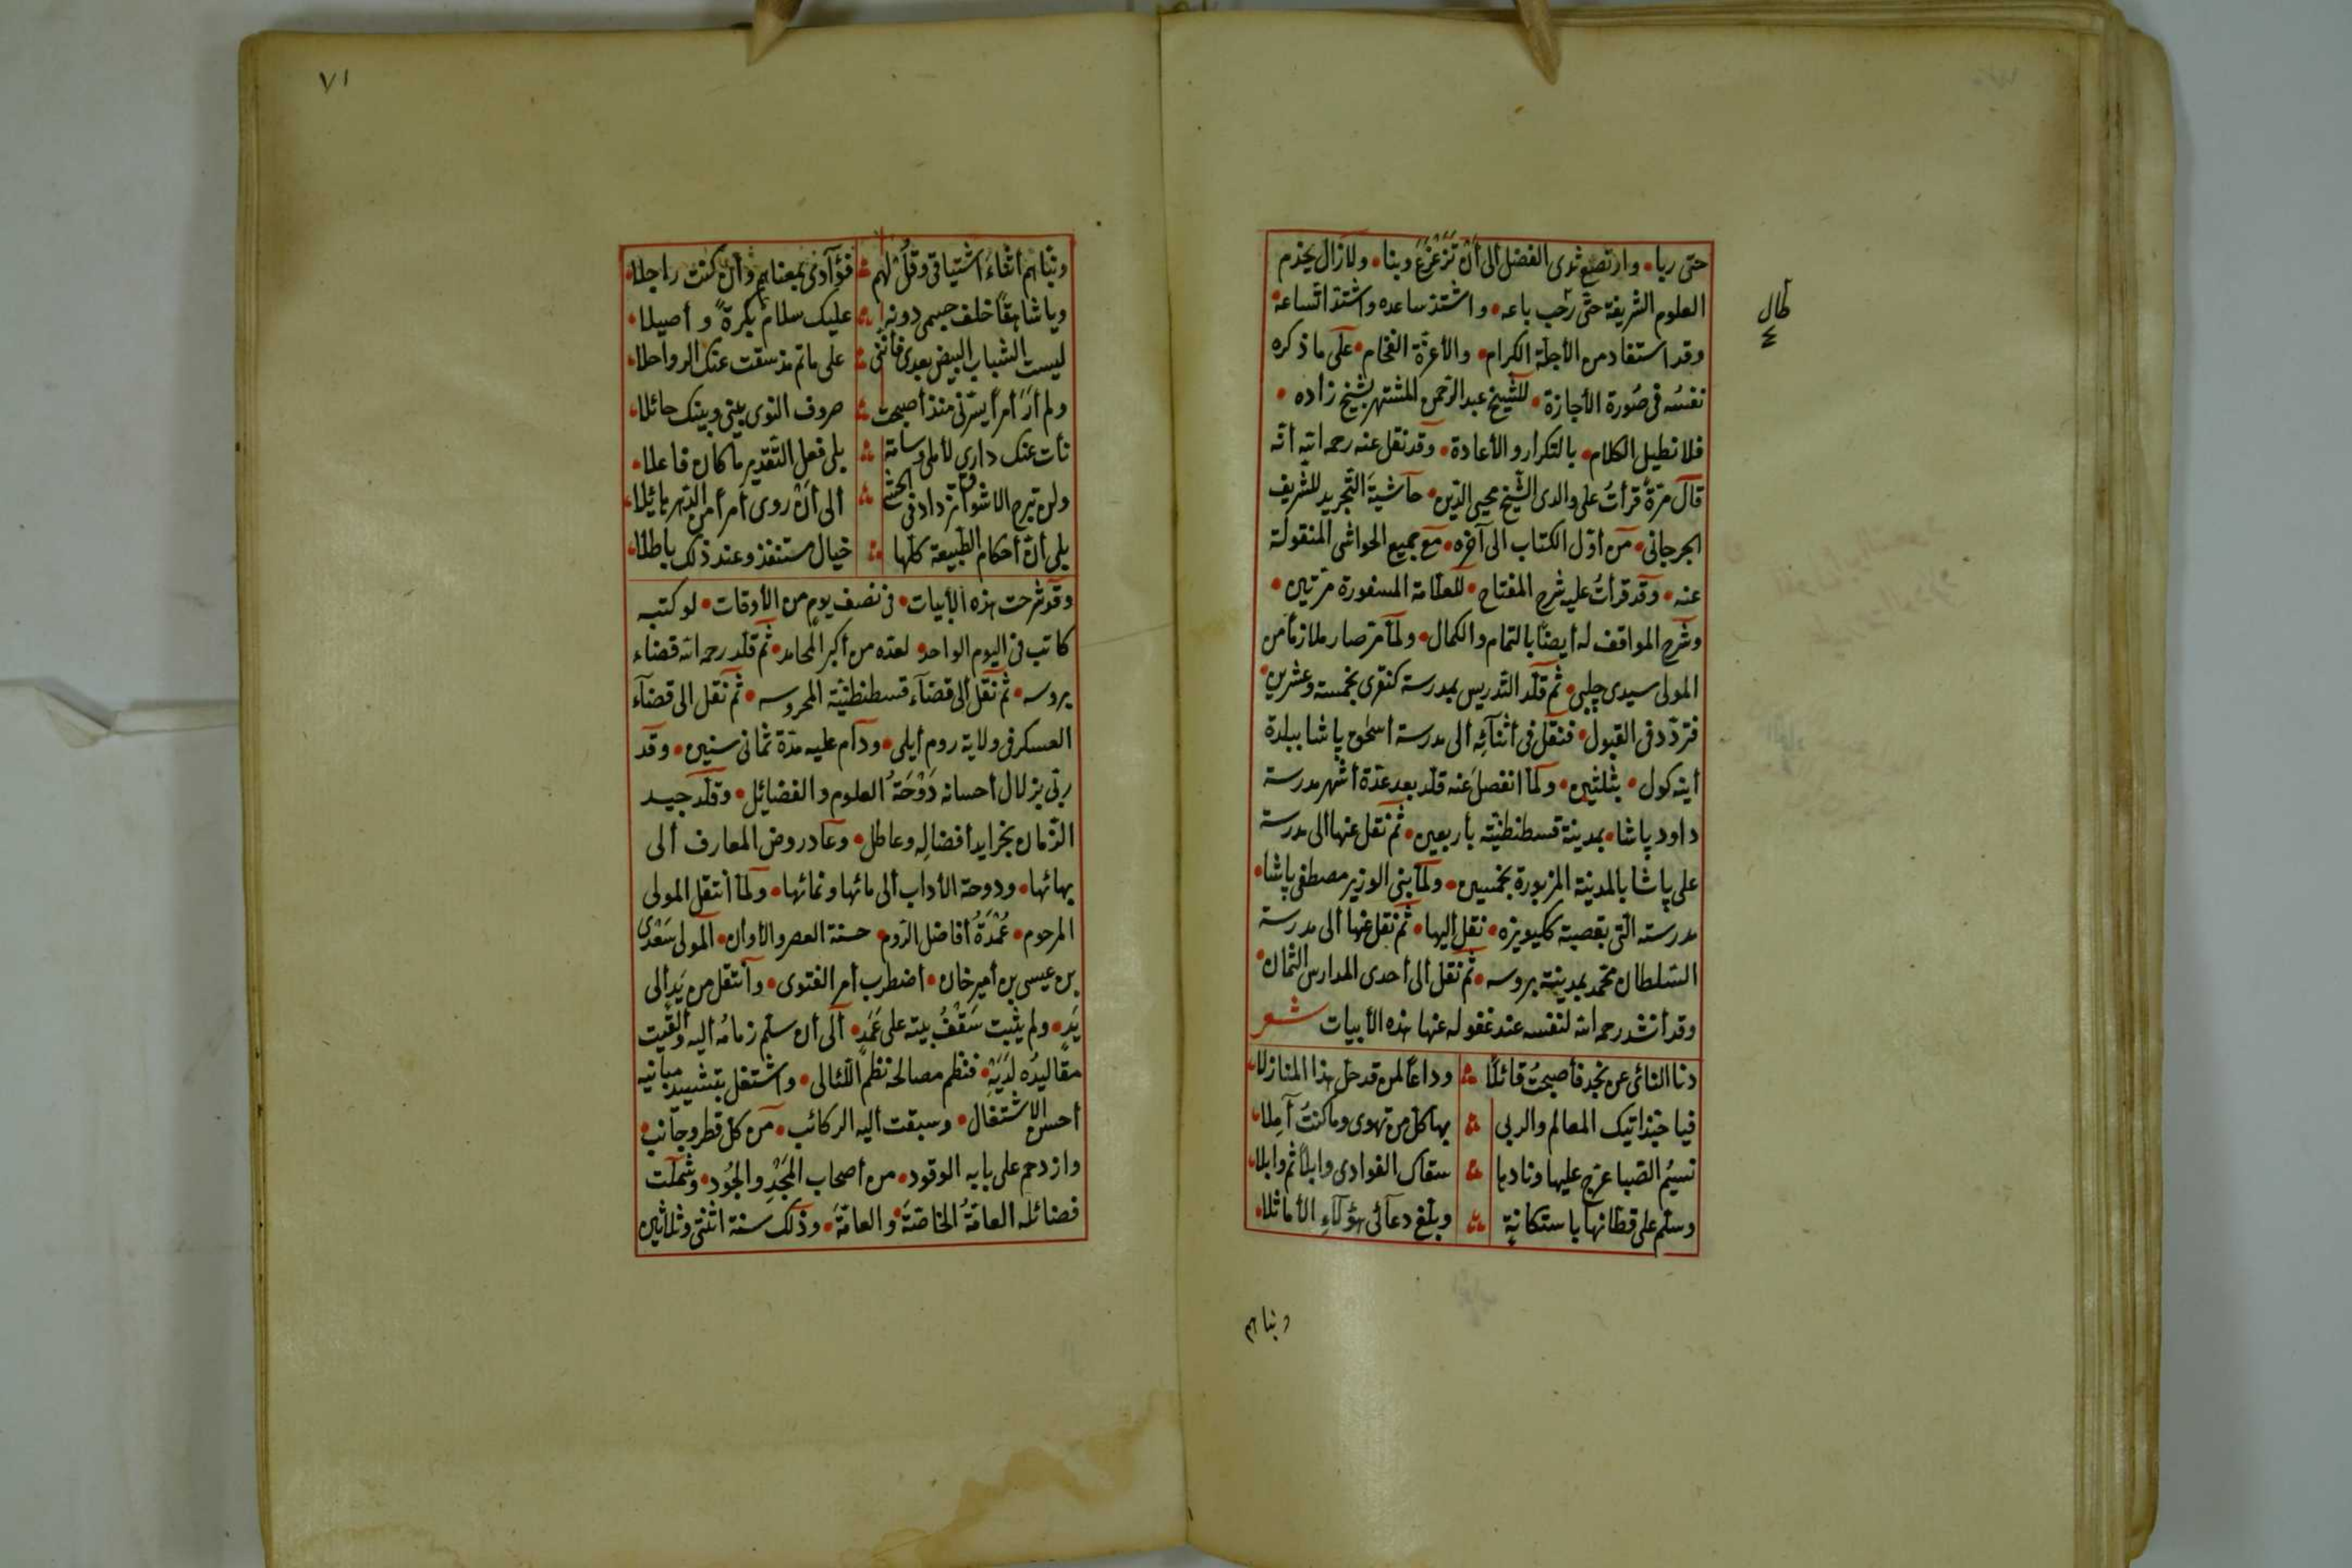 حتى ربا • وارتضع ثدى الفضل الى أن ترعرع وبنا • ولازال يخدم
العلوم الشريفة حتى رحب باعه • واشتد ساعده واشتد اتساعه
طال
وقد استفاد من الأجلة الكرام • والأعزة الفخام • على ما ذكره
نفسه فى صورة الأجازة • للشيخ عبد الرحمن المشتهر بشيخ زاده •
فلا نطيل الكلام • بالتكرار والأعادة • وقد نقل عنه رحمه الله أنه
قال مرة قرأت على والدى الشيخ محيى الدين • حاشية التجريد للشريف
الجرجانى • من أول الكتاب الى آخره • مع جميع الحواشى المنقولة
عنه • وقد قرأت عليه شرح المفتاح • للعلامة المسفورة مرتين •
وشرح المواقف له أيضا بالتمام والكمال • ولما مر صار ملازما من
المولى سيدى چلبى • ثم قلد التدريس بمدرسة كنقرى بخمسة وعشرين •
فتردد فى القبول • فنقل فى أثنائه ألى مدرسة أسحق پاشا ببلدة
أينه كول • بثلثين • ولما انفصل عنه قلد بعد عدة أشهر مدرسة
داود پاشا • بمدينة قسطنطنيه بأربعين • ثم نقل عنها ألى مدرسة
على پاشا بالمدينة المزبورة بخمسين • ولما بنى الوزير مصطفى پاشا •
مدرسته التى بقصبة ككبويزه • نقل إليها • ثم نقل عنها ألى مدرسة
السلطان محمد بمدينة بروسه • ثم نقل ألى أحدى المدارس الثمان •
وقد أنشد رحمه الله لنفسه عند غفوله عنها هذه الأبيات شعر
دنا النائى عن نجد فأصبحت قائلا وداعا لمن قد حل هذا المنازلا
فيا حبذاتيك المعالم والربى بها كل من تهوى وما كنت آملا
نسيم الصبا عرج عليها ونادها سقاك الغوادى وابلا ثم وابلا
وسلم على قطانها باستكانة وبلغ دعائى هؤلاء الأماثلا
وبناهم
٧١
وبناهم أثناء اشتياقى وقل لهم فؤآدى بمعناهم وأن كنت راجلا
وياشاهقا خلف جيمى دونه عليك سلام بكرة وأصيلا
ليست الشباب البيض بعدى فأننى على ماتم مذ سقت عنك الرواحلا
ولم أر أمرا يسرنى منذ أصبحت صروف النوى بينى وبينك حائلا
نأت عنك دارى لأملى وسامة بلى فعل التقدير ما كان فاعلا
ولن تبرح الاشواق تزداد فى الحشى ألى أن روى أمرا من الدهر هائلا
بلى أن أحكام الطبيعة كلها خيال مستنفذ وعند ذلك باطلا
وقد شرحت هذه الأبيات • فى نصف يوم من الأوقات • لو كتبه
كاتب فى اليوم الواحد • لعده من أكبر المحامد • ثم قلد رحمه الله قضاء
بروسه • ثم نقل ألى قضاء قسطنطنيه المحروسه • ثم نقل الى قضاء
العسكر فى ولاية روم أيلى • ودام عليه مدة ثمانى سنين • وقد
ربى بزلال أحسانه دوحة العلوم والفضائل • وقلد جيد
الزمان بخرايد أفضاله وعاطل • وعاد روض المعارف ألى
بهائها • ودوحة الأداب ألى مائها ونمائها • ولما أنتقل المولى
المرحوم • عمدة أفاضل الروم • حسنة العصر والأوان • المولى سعدى
بن عيسى بن أمير خان • أضطرب أمر الفتوى • وأنتقل من يد ألى
يد • ولم يثبت سقف بيته على عمد • ألى أن سلم زمامه أليه وألقيت
مقاليده لديه • فنظم مصالحه نظم اللئالى • واشتغل بتشييد مبانيه
أحسن الاشتغال • وسبقت أليه الركائب • من كل قطر وجانب •
وازدحم على بابه الوفود • من أصحاب المجد والجود • وشملت
فضائله العامة الخاصة والعامة • وذلك سنة اثنتى وثلاثين